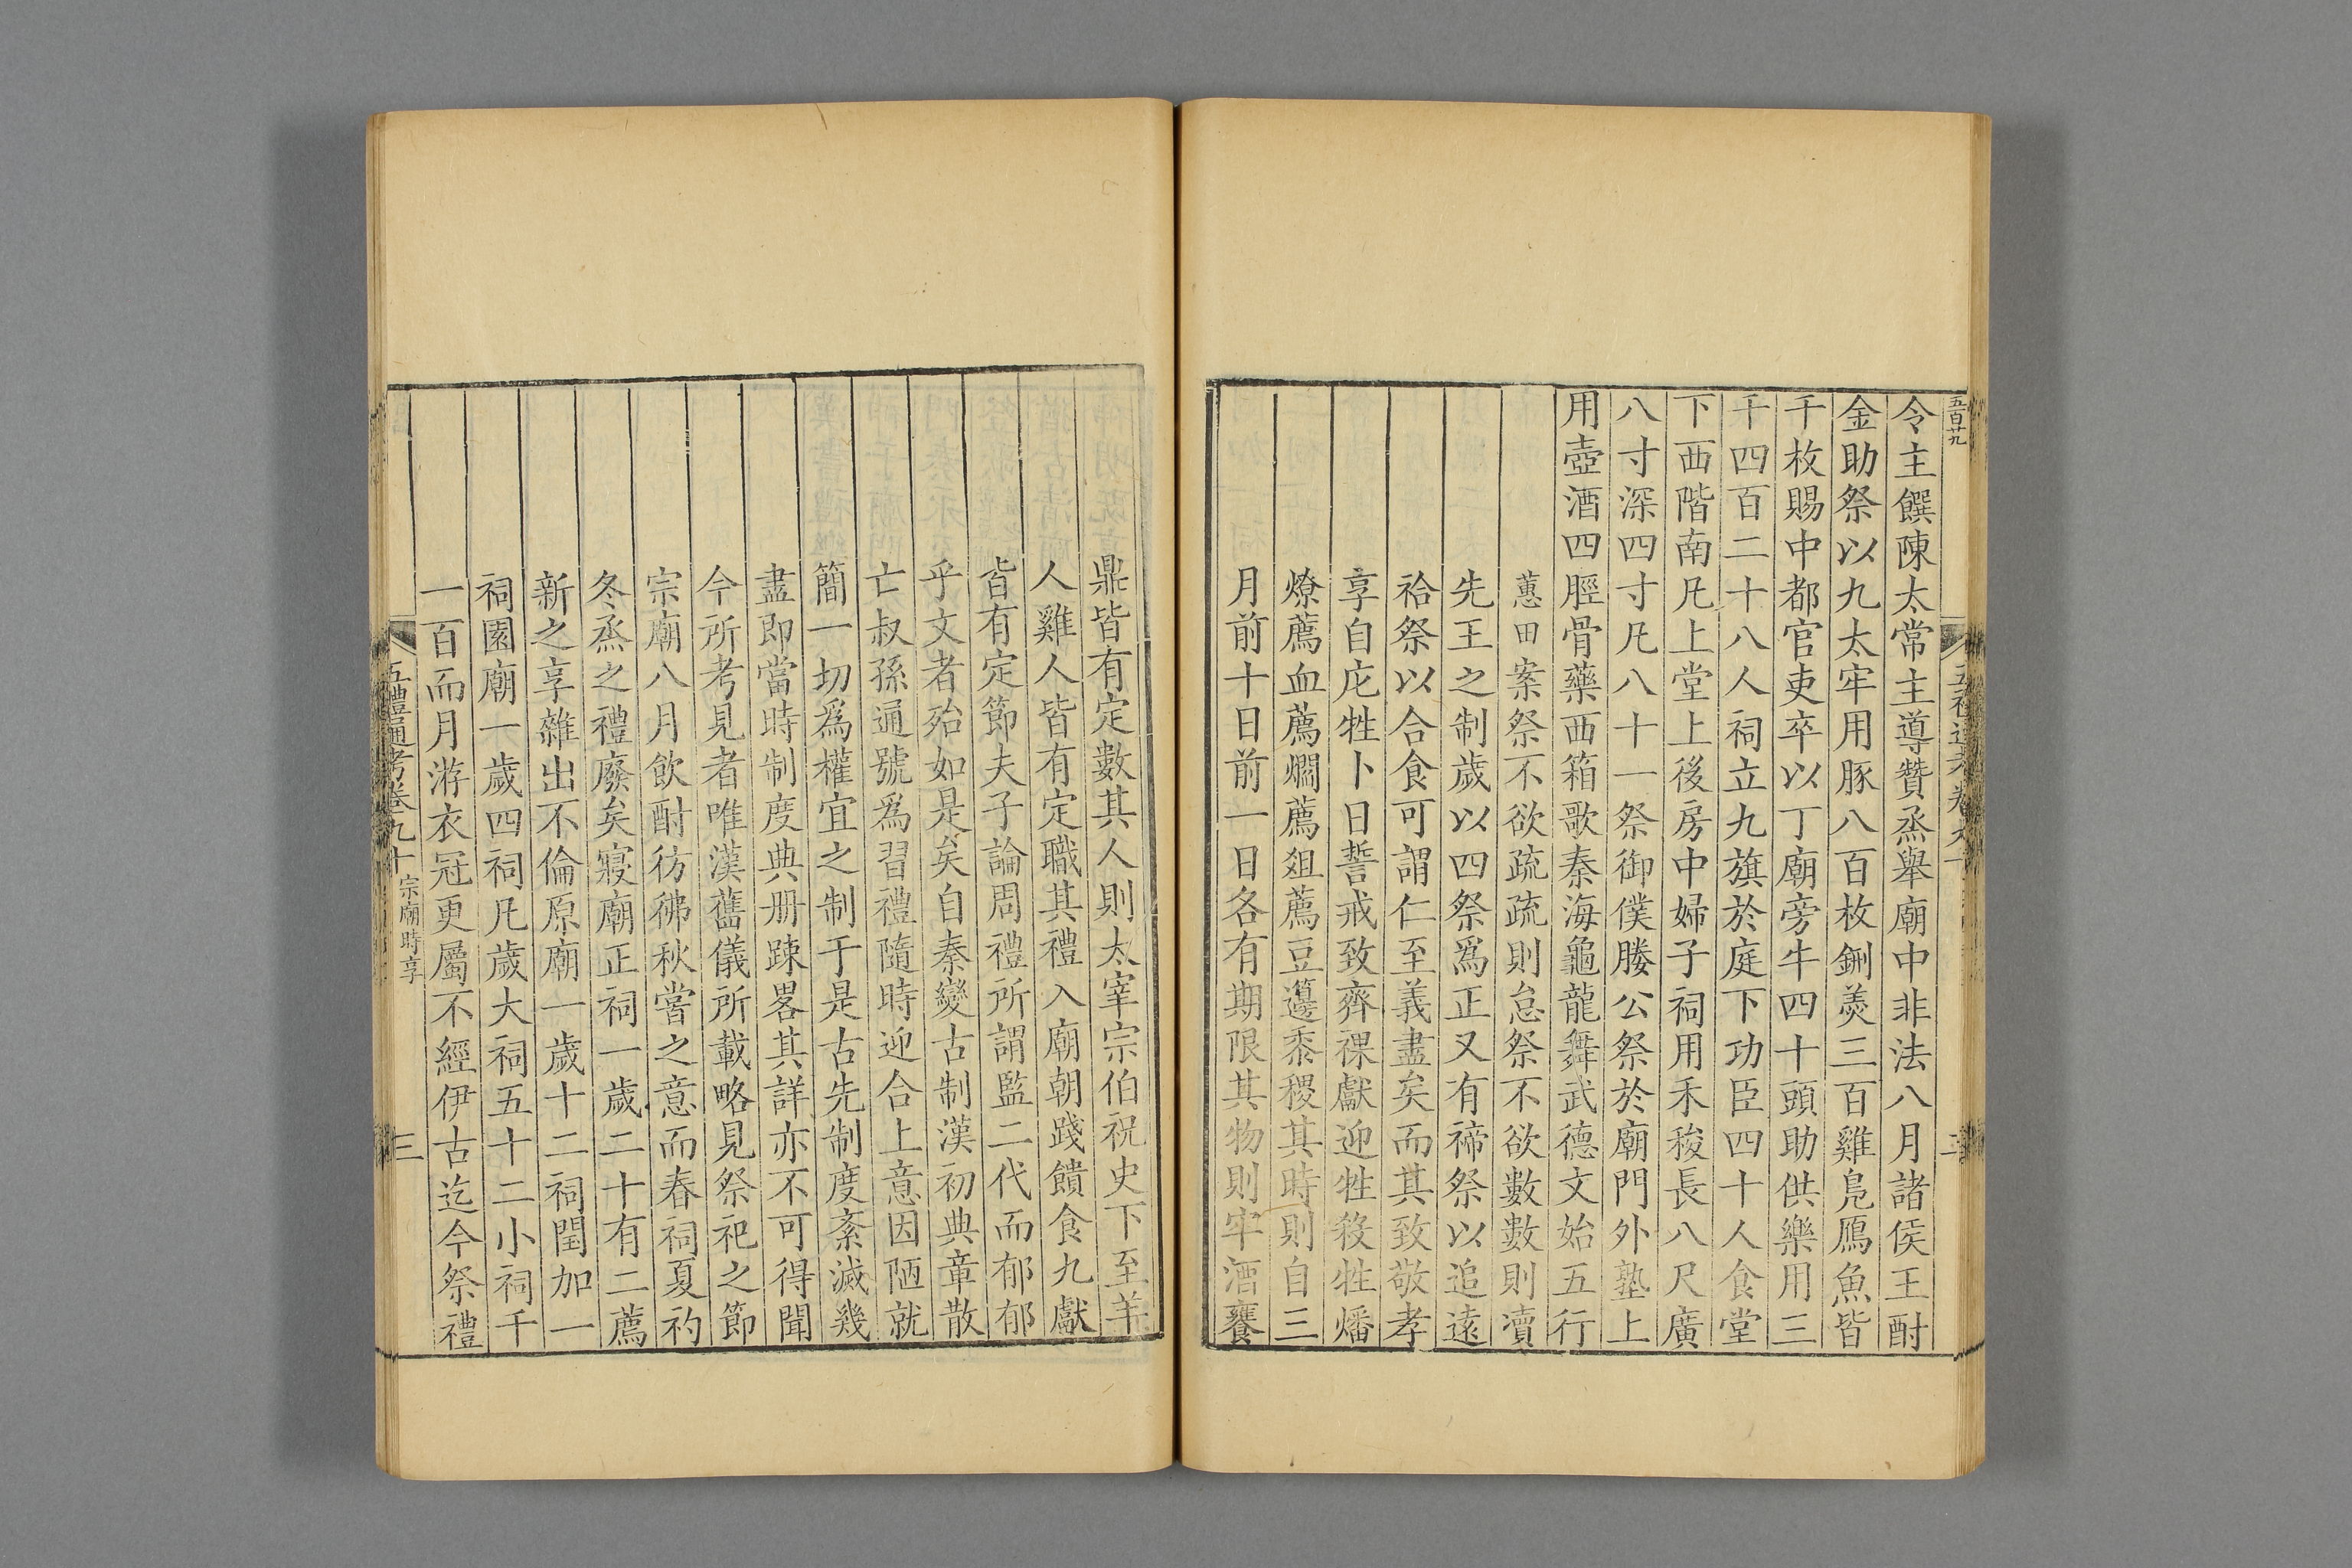 五百廿九
令主饌陳太常主導贊烝舉廟中非法八月諸侯王酎
金助祭以九太牢用豚八百枚鉶羮三百雞鳬鴈魚皆
千枚賜中都官吏卒以丁廟旁牛四十頭助供樂用三
千四百二十八人祠立九旗於庭下功臣四十人食堂
下西階南凡上堂上後房中婦子祠用禾稷長八尺廣
八寸深四寸凡八十一祭御僕滕公祭於廟門外塾上
用壺酒四脛骨藥西箱歌秦海龜龍舞武德文始五行
蕙田案祭不欲疏疏則怠祭不欲數數則瀆
先王之制歲以四祭爲正又有禘祭以追遠
祫祭以合食可謂仁至義盡矣而其致敬孝
享自庀牲卜日誓戒致齊祼獻迎牲殺牲燔
燎薦血薦爓薦俎薦豆籩黍稷其時則自三
月前十日前一日各有期限其物則牢酒饔
鼎皆有定數其人則太宰宗伯祝史下至羊
人雞人皆有定職其禮入廟朝踐饋食九獻
皆有定節夫子論周禮所謂監二代而郁郁
乎文者殆如是矣自秦變古制漢初典章散
亡叔孫通號爲習禮隨時迎合上意因陋就
簡一切爲權宜之制于是古先制度紊滅幾
盡即當時制度典册踈畧其詳亦不可得聞
今所考見者唯漢舊儀所載略見祭祀之節
宗廟八月飲酎彷彿秋嘗之意而春祠夏礿
冬烝之禮廢矣寢廟正祠一歲二十有二薦
新之享雜出不倫原廟一歲十二祠閏加一
祠園廟一歲四祠凡歲大祠五十二小祠千
一百而月游衣冠更屬不經伊古迄今祭禮
五禮通考卷九十 宗廟時享 三